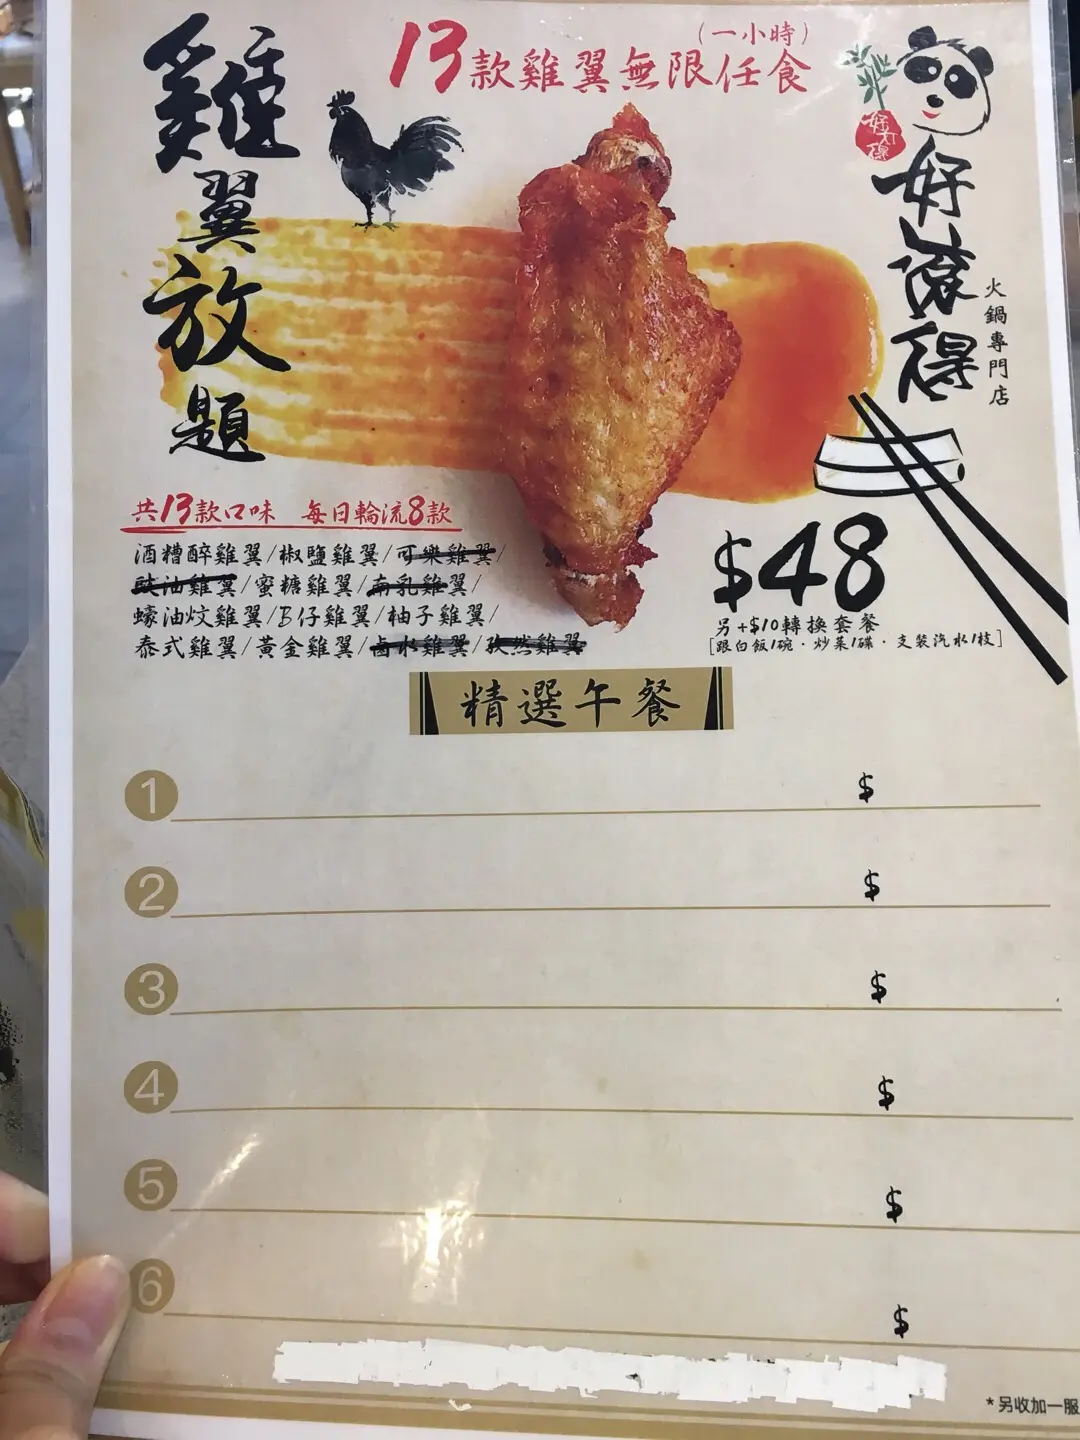 雞翼放題
13款雞翼無限任食
(一小時)
好滾得
火鍋專門店
共13款口味 每日輪流8款
酒糟醉雞翼/椒鹽雞翼/可樂雞翼/
豉油雞翼/蜜糖雞翼/南乳雞翼/
蠔油炆雞翼/B仔雞翼/柚子雞翼/
泰式雞翼/黃金雞翼/鹵水雞翼/孜然雞翼
$48
另+$10轉換套餐
[跟白飯1碗·炒菜1碟·支裝汽水1枝]
精選午餐
1 $
2 $
3 $
4 $
5 $
6 $
*另收加一服